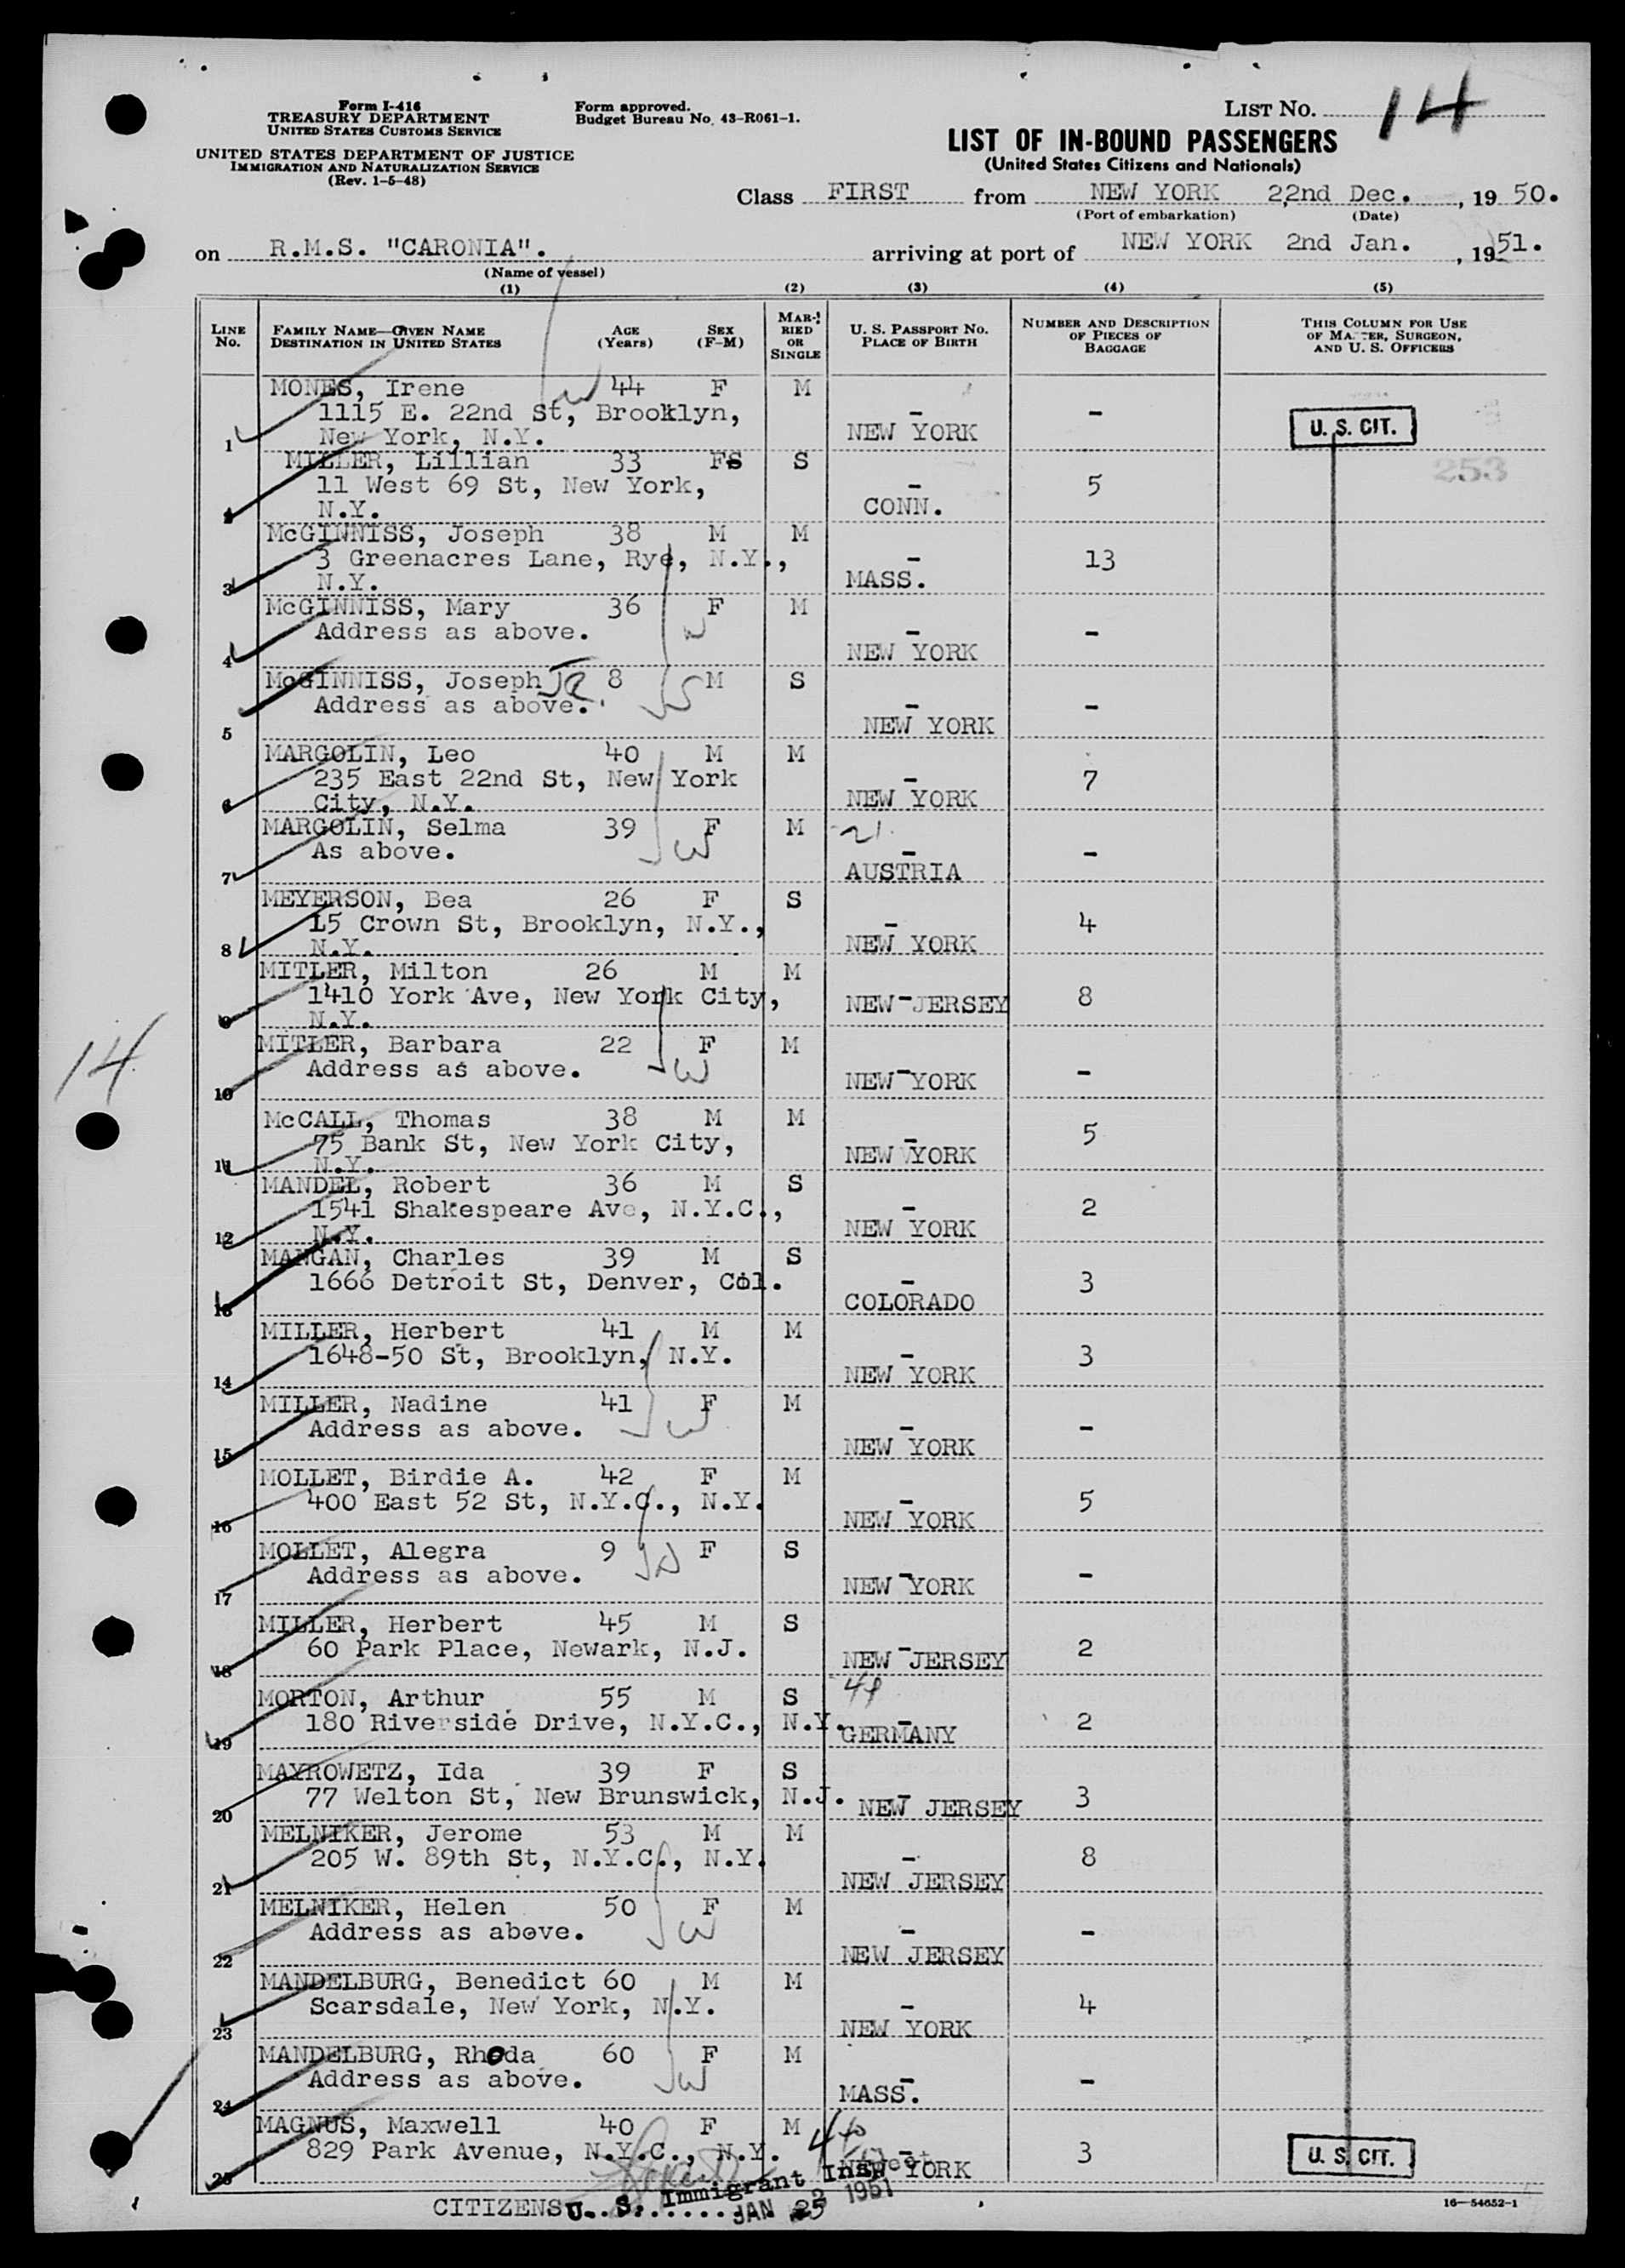 Form I-416
TREASURY DEPARTMENT
UNITED STATES CUSTOMS SERVICE
UNITED STATES DEPARTMENT OF JUSTICE
IMMIGRATION AND NATURALIZATION SERVICE
(Rev. 1-5-48)
Form approved.
Budget Bureau No. 43-R061-1.
LIST No. 14
LIST OF IN-BOUND PASSENGERS
(United States Citizens and Nationals)
Class FIRST from NEW YORK 22nd Dec. , 19 50.
(Port of embarkation) (Date)
on R.M.S. "CARONIA". arriving at port of NEW YORK 2nd Jan. , 19 51.
(Name of vessel)
(1) (2) (3) (4) (5)
LINE No. FAMILY NAME—GIVEN NAME DESTINATION IN UNITED STATES AGE (Years) SEX (F-M) MARRIED OR SINGLE U. S. PASSPORT NO. PLACE OF BIRTH NUMBER AND DESCRIPTION OF PIECES OF BAGGAGE THIS COLUMN FOR USE OF MASTER, SURGEON, AND U. S. OFFICERS
MONES, Irene 44 F M
1115 E. 22nd St, Brooklyn, - -
1 New York, N.Y. NEW YORK U. S. CIT.
MILLER, Lillian 33 FS S 253
11 West 69 St, New York, - 5
2 N.Y. CONN.
McGINNISS, Joseph 38 M M
3 Greenacres Lane, Rye, N.Y., - 13
3 N.Y. MASS.
McGINNISS, Mary 36 F M
Address as above. - -
4 NEW YORK
McGINNISS, Joseph JR 8 M S
Address as above. - -
5 NEW YORK
MARGOLIN, Leo 40 M M
235 East 22nd St, New York - 7
6 City, N.Y. NEW YORK
MARGOLIN, Selma 39 F M 21
As above. - -
7 AUSTRIA
MEYERSON, Bea 26 F S
15 Crown St, Brooklyn, N.Y., - 4
8 N.Y. NEW YORK
MITLER, Milton 26 M M
1410 York Ave, New York City, NEW JERSEY 8
9 N.Y.
MITLER, Barbara 22 F M
Address as above. - -
10 NEW YORK
McCALL, Thomas 38 M M
75 Bank St, New York City, - 5
11 N.Y. NEW YORK
MANDEL, Robert 36 M S
1541 Shakespeare Ave, N.Y.C., - 2
12 N.Y. NEW YORK
MANGAN, Charles 39 M S
1666 Detroit St, Denver, Col. - 3
13 COLORADO
MILLER, Herbert 41 M M
1648-50 St, Brooklyn, N.Y. - 3
14 NEW YORK
MILLER, Nadine 41 F M
Address as above. - -
15 NEW YORK
MOLLET, Birdie A. 42 F M
400 East 52 St, N.Y.C., N.Y. - 5
16 NEW YORK
MOLLET, Alegra 9 F S
Address as above. - -
17 NEW YORK
MILLER, Herbert 45 M S
60 Park Place, Newark, N.J. - 2
18 NEW JERSEY
MORTON, Arthur 55 M S
180 Riverside Drive, N.Y.C., N.Y. - 2
19 GERMANY
MAYROWETZ, Ida 39 F S
77 Welton St, New Brunswick, N.J. - 3
20 NEW JERSEY
MELNIKER, Jerome 53 M M
205 W. 89th St, N.Y.C., N.Y. - 8
21 NEW JERSEY
MELNIKER, Helen 50 F M
Address as above. - -
22 NEW JERSEY
MANDELBURG, Benedict 60 M M
Scarsdale, New York, N.Y. - 4
23 NEW YORK
MANDELBURG, Rhoda 60 F M
Address as above. - -
24 MASS.
MAGNUS, Maxwell 40 F M
829 Park Avenue, N.Y.C., N.Y. - 3 U. S. CIT.
25 NEW YORK
CITIZENS U. S. Immigrant Inspector
JAN 2 1951
16-54652-1
14